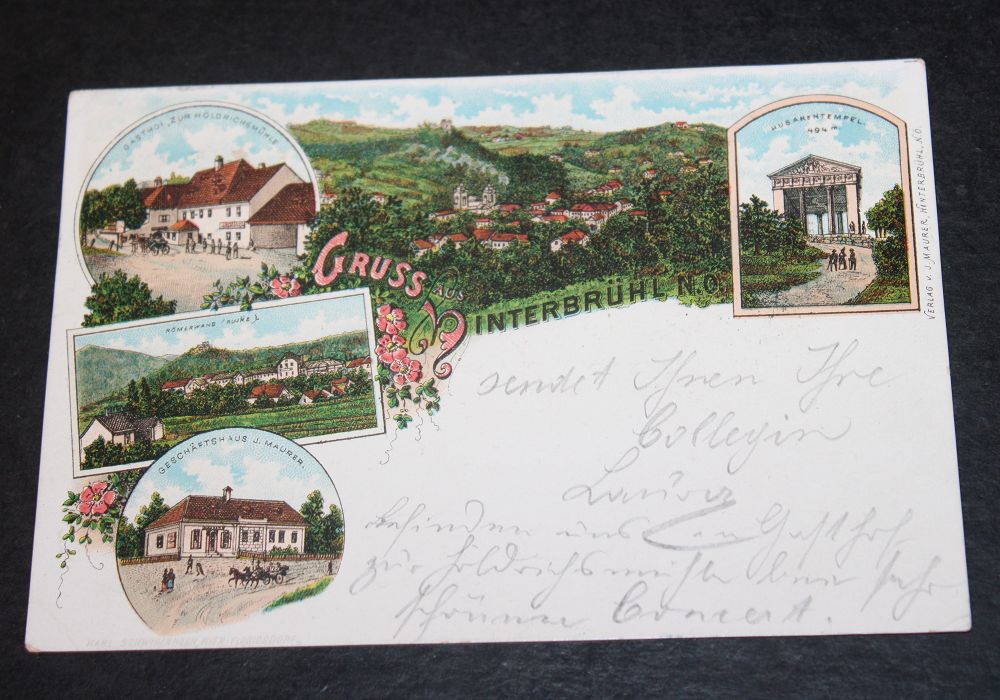 GASTHOF „ZUR HÖLDRICHSMÜHLE
HUSARENTEMPEL.
494 m
VERLAG V. J. MAURER, HINTERBRÜHL, N.Ö.
GRUSS AUS
HINTERBRÜHL N.Ö.
RÖMERWAND (RUINE)
GESCHÄFTSHAUS J. MAURER.
sendet Ihnen Ihre
Collegin
befinden uns im Gasthof
zur Höldrichsmühle beim sehr
schönen Concert.
KARL SCHWIDERNOCH WIEN-FLORIDSDORF